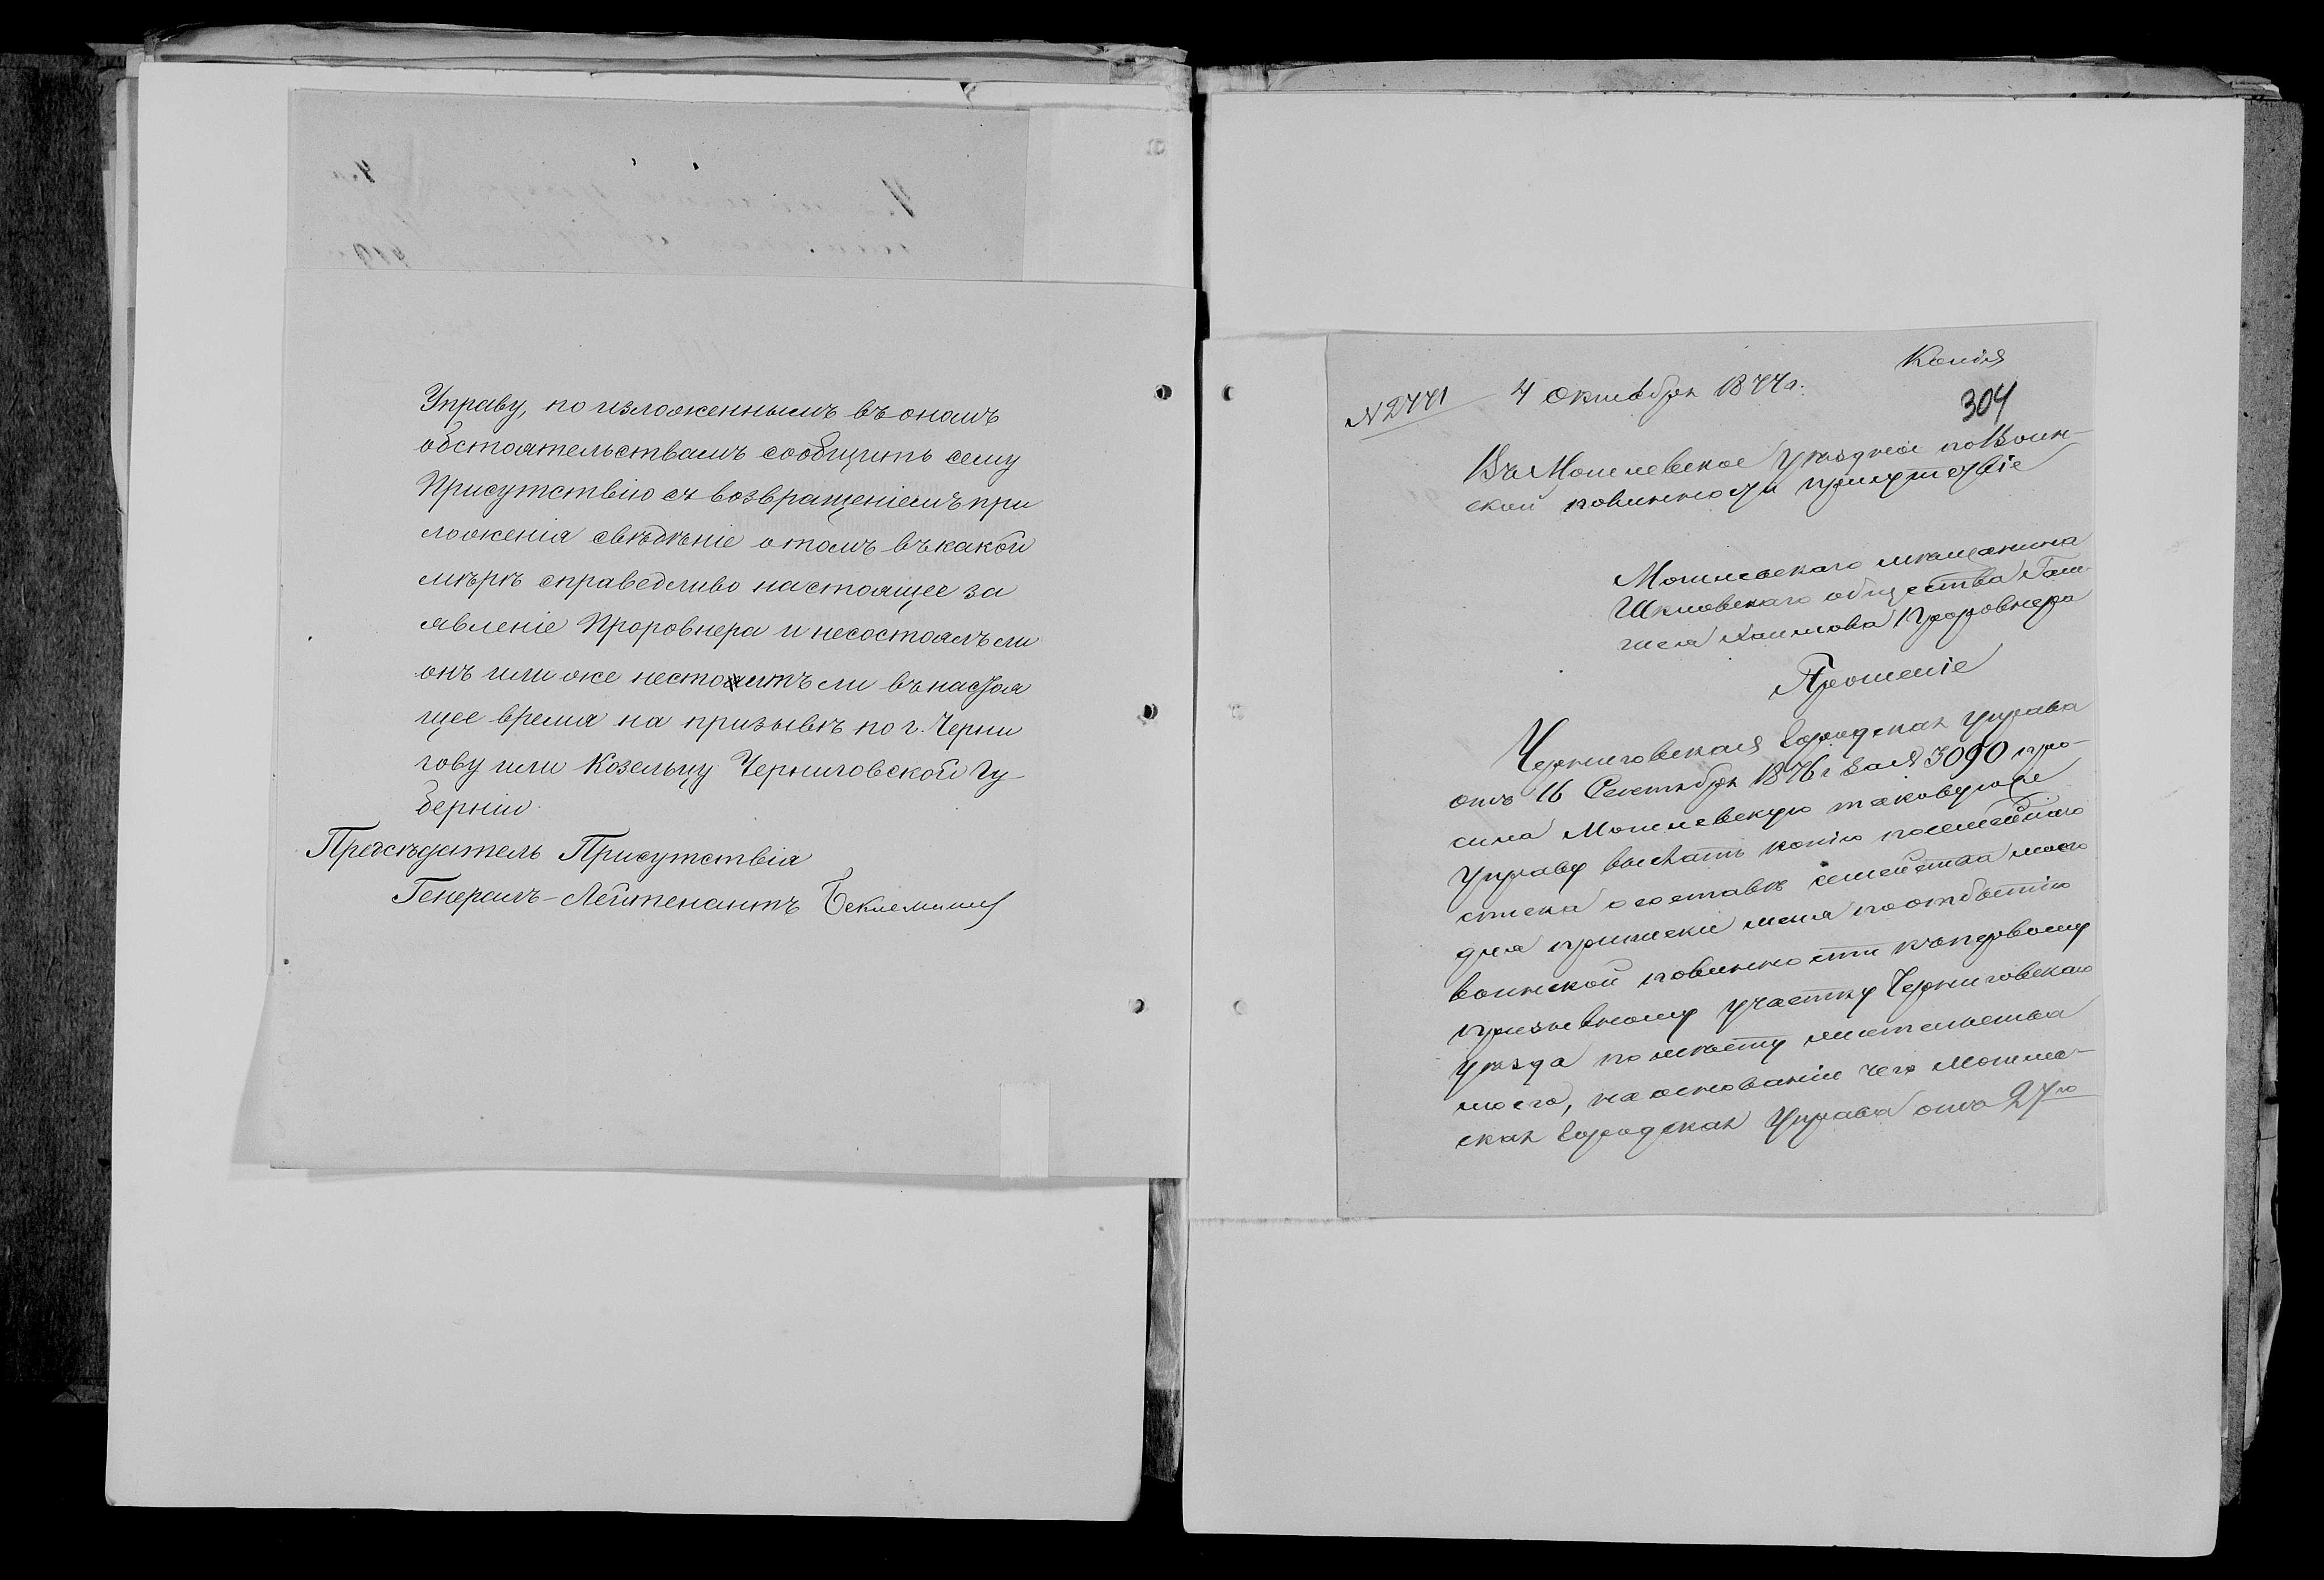 Управу, по изложеннымъ въ ономъ
обстоятельствамъ сообщить сему
Присутствію съ возвращеніемъ при
ложенія свѣдѣніе о томъ въ какой
мѣрѣ справедливо настоящее за
явленіе Проровнера и несостоялъ ли
онъ или же нестоитъ ли въ настоя
щее время на призывѣ по г. Черни
гову или Козельцу Черниговской Гу-
берніи.
Предсѣдатель Присутствія
Генералъ-Лейтенантъ Беклемишевъ
Копія
№ 2771 4 Октября 1877 г.
304
Въ Могилевское Уѣздное по Воин-
ской повинности присутствіе
Могилевскаго мѣщанина
Шкловскаго общества
Хаимова Проровнера
Прошеніе
Черниговская Городская Управа
отъ 16 Сентября 1876 г. за № 3090 про-
сила Могилевскую таковую же
Управу выслать копію посемейнаго
списка о составѣ семейства моего
для приписки меня по отбытію
воинской повинности къ первому
призывному участку Черниговскаго
уѣзда по мѣсту жительства
моего, на основаніи чего Могилев-
ская Городская Управа отъ 27го